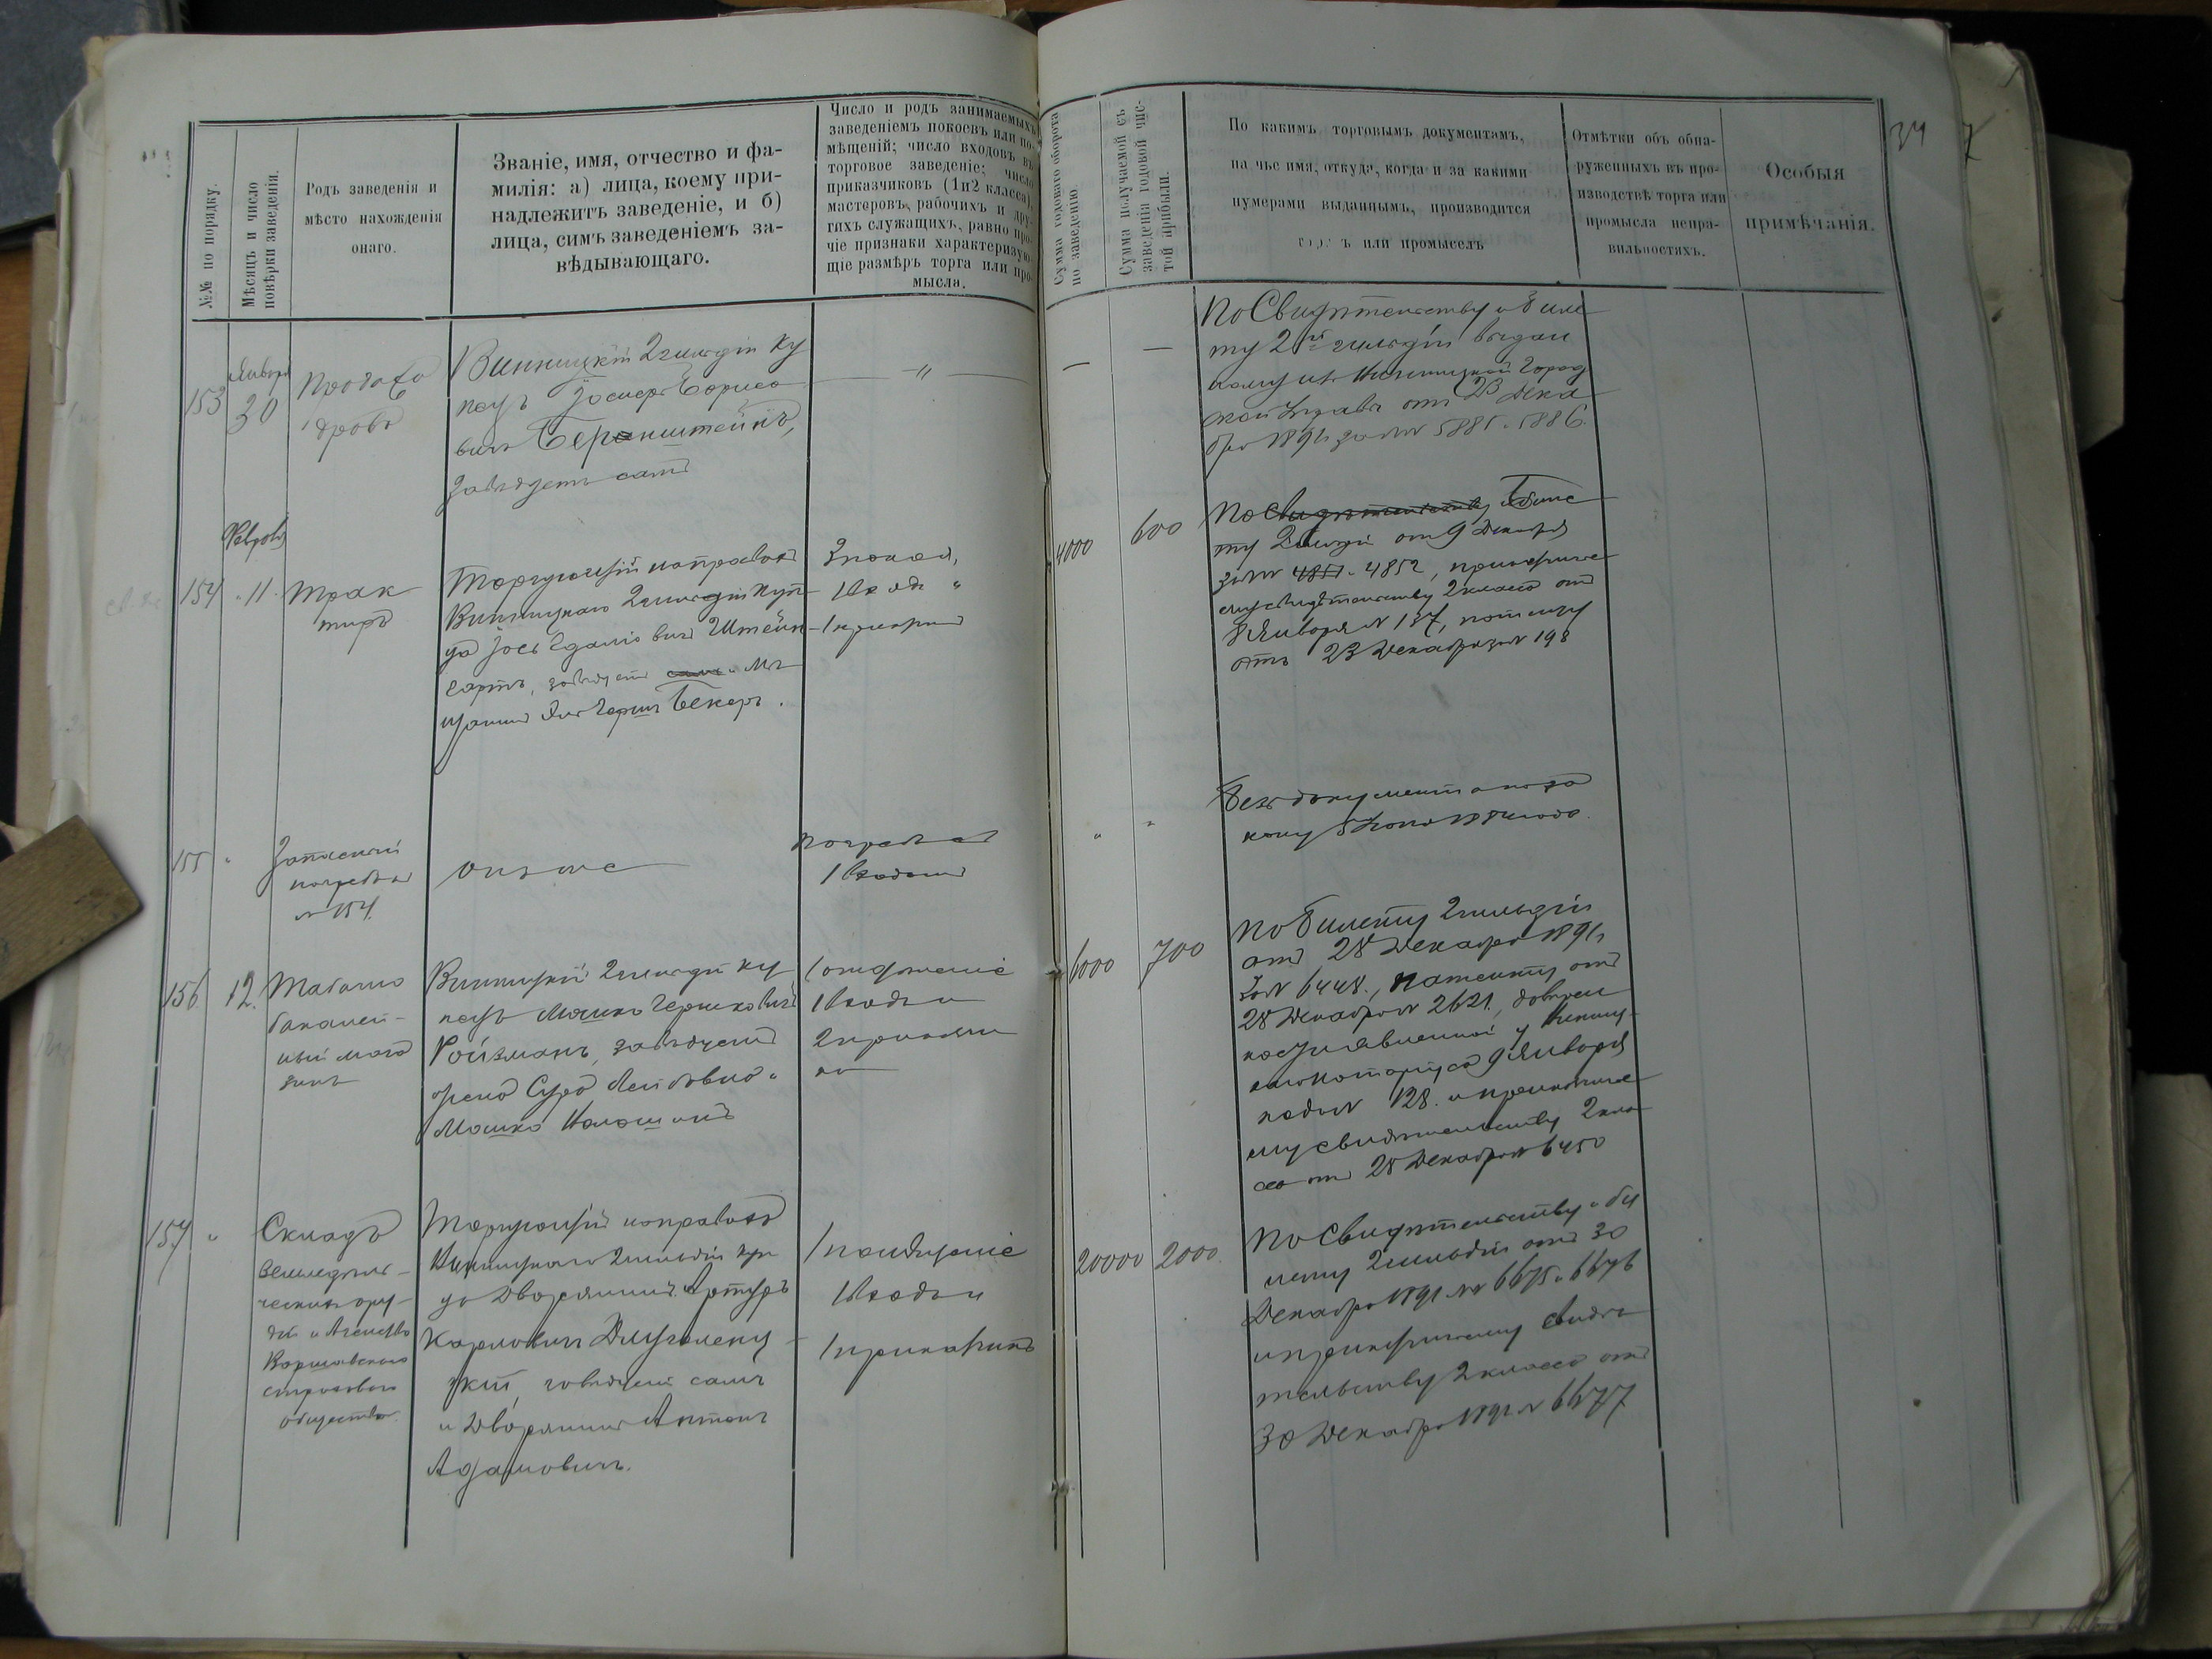 №№ по порядку.
Мѣсяцъ и число
повѣрки заведенія.
Родъ заведенія и
мѣсто нахожденія
онаго.
Званіе, имя, отчество и фа-
милія: а) лица, коему при-
надлежитъ заведеніе, и б)
лица, симъ заведеніемъ за-
вѣдывающаго.
Число и родъ занимаемыхъ
заведеніемъ покоевъ или по-
мѣщеній; число входовъ въ
торговое заведеніе; число
приказчиковъ (1 и 2 класса),
мастеровъ, рабочихъ и дру-
гихъ служащихъ, равно про-
чіе признаки характеризую-
щіе размѣръ торга или про-
мысла.
Сумма годоваго оборота
по заведенію.
Сумма получаемой съ
заведенія годовой чис-
той прибыли.
По какимъ торговымъ документамъ,
на чье имя, откуда, когда и за какими
нумерами выданнымъ, производится
ъ или промыселъ
Отмѣтки объ обна-
руженныхъ въ про-
изводствѣ торга или
промысла непра-
вильностяхъ.
Особыя
примѣчанія.
34
153
Января
30
Продажа
дровъ
Винницкій 2 гильдіи ку
пецъ
вичъ Беренштейнъ,
завѣдуетъ самъ
"
—
—
По Свидѣтельству и биле
ту 2й гильдіи выдан
ному изъ Винницкой Город
ской Управы отъ 23 Дека
бря 1891 за №№ 5885 и 5886.
154
Февраля
11
Трак
тиръ
Торгующій на правахъ
Винницкаго 2 гильдіи куп
ца Штейн
завѣдуетъ самъ и Мѣ
щанинъ Бекеръ.
3 покоя,
1 входъ "
4000
600
По Свидѣтельству и биле
ту 2 гильдіи отъ 9 Декабря
за №№ 4851 и 4852, приказчичье
му свидѣтельству 2 класса отъ
8 Января № 137, патенту
отъ 23 Декабря за № 198
155
"
Запасный
погребъ
№ 154.
Онъ же
погребъ
1 входомъ
"
"
Безъ документа по за
кону 5 1884 года.
156
12.
Табачно
бакалей-
ный мага
зинъ
Винницкій 2 гильдіи ку
пецъ Мошко Гершковичъ
Ройзманъ, завѣдуетъ
Мошко
1 отдѣленіе
1 входъ и
2 приказчи
ка
6000
700
По билету 2 гильдіи
отъ 28 Декабря 1891 г
за № 6448., патенту отъ
28 Декабря № 2621, довѣрен
ности явленной у
нотаріуса 9 Января
подъ № 128. и приказчичье
му свидѣтельству 2 клас
са отъ 28 Декабря № 6450
157
"
Складъ
земледѣль-
ческихъ ору-
дій и Агенство
Варшавскаго
страховаго
общества.
Торгующій на правахъ
Винницкаго 2 гильдіи куп
ца Дворянинъ Артуръ
Карловичъ
завѣдуетъ самъ
и Дворянинъ Антонъ
Адамовичъ.
1 помѣщеніе
1 входъ и
1 приказчикъ
20000
2000.
По Свидѣтельству и би
лету 2 гильдіи отъ 30
Декабря 1891 №№ 6675 и 6676
и приказчичьему свидѣ
тельству 2 класса отъ
30 Декабря 1891 № 6677